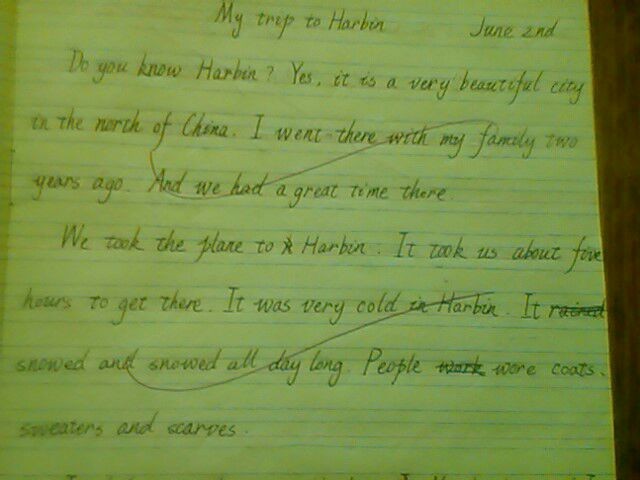 My trip to Harbin June 2nd
Do you know Harbin? Yes, it is a very beautiful city
in the north of China. I went there with my family two
years ago. And we had a great time there.
We took the plane to Harbin. It took us about five
hours to get there. It was very cold in Harbin. It rained
snowed and snowed all day long. People work wore coats.
sweaters and scarves.